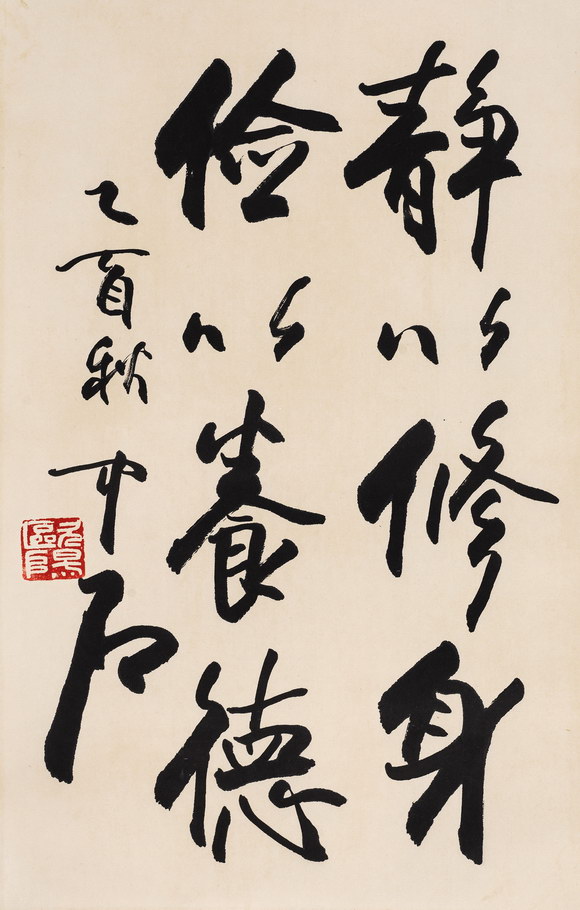 静以修身
俭以養德
乙亥秋 中石